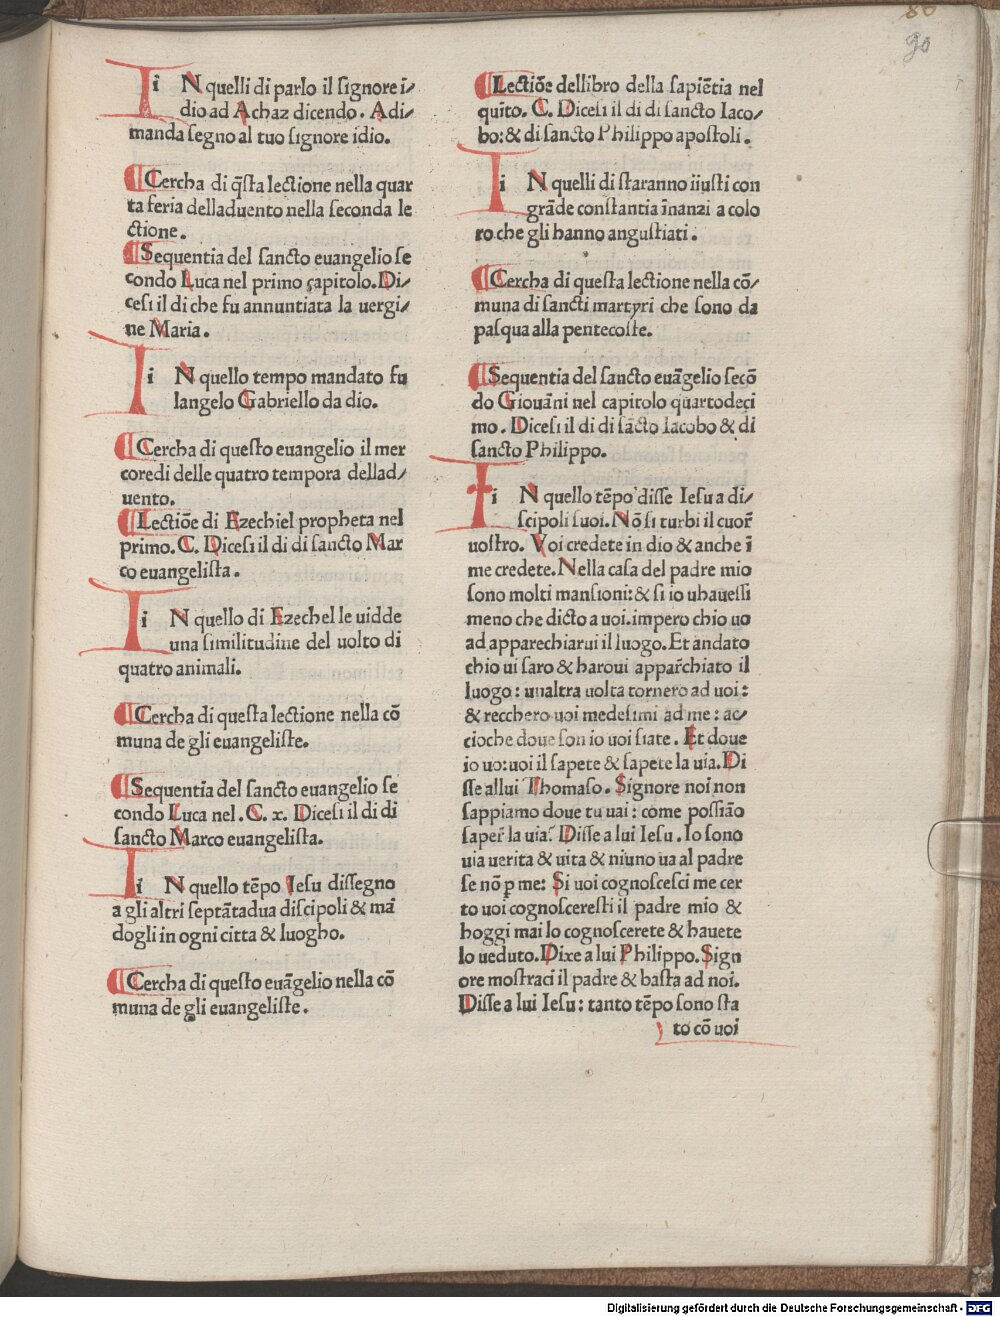 90
IN quelli di parlo il ſignore i⸗
dio ad Achaz dicendo. Adi⸗
manda ſegno al tuo ſignore idio.
¶ Cercha di q̄ſta lectione nella quar
ta feria delladuento nella ſeconda le
ctione.
¶ Sequentia del ſancto euangelio ſe
condo Luca nel primo capitolo. Di⸗
ceſi il di che fu annuntiata la uergi⸗
ne Maria.
IN quello tempo mandato fu
langelo Gabriello da dio.
¶ Cercha di queſto euangelio il mer
coredi delle quatro tempora dellad⸗
uento.
¶ Lectiōe di Ezechiel propheta nel
primo. C. Diceſi il di di ſancto Mar
co euangeliſta.
IN quello di Ezechel le uidde
una ſimilitudine del uolto di
quatro animali.
¶ Cercha di queſta lectione nella cō
muna de gli euangeliſte.
¶ Sequentia del ſancto euangelio ſe
condo Luca nel. C. x. Diceſi il di di
ſancto Marco euangeliſta.
IN quello tēpo Ieſu diſſegno
a gli altri ſeptātadua diſcipoli & mā
dogli in ogni citta & luogho.
¶ Cercha di queſto euāgelio nella cō
muna de gli euangeliſte.
¶ Lectiōe dellibro della ſapiētia nel
quīto. C. Diceſi il di di ſancto Iaco⸗
bo: & di ſancto Philippo apoſtoli.
IN quelli di ſtaranno iiuſti con
grāde conſtantia īnanzi a colo
ro che gli hanno anguſtiati.
¶ Cercha di queſta lectione nella cō⸗
muna di ſancti martyri che ſono da
paſqua alla pentecoſte.
¶ Sequentia del ſancto euāgelio ſecō
do Giouāni nel capitolo quartodeci
mo. Diceſi il di di ſācto Iacobo & di
ſancto Philippo.
IN quello tēpo diſſe Ieſu a di⸗
ſcipoli ſuoi. Nō ſi turbi il cuor̄
uoſtro. Voi credete in dio & anche ī
me credete. Nella caſa del padre mio
ſono molti manſioni: & ſi io uhaueſſi
meno che dicto a uoi. impero chio uo
ad apparechiarui il luogo. Et andato
chio ui ſaro & haroui appar̄chiato il
luogo: unaltra uolta tornero ad uoi:
& recchero uoi medeſimi ad me: ac⸗
cioche doue ſon io uoi ſiate. Et doue
io uo: uoi il ſapete & ſapete la uia. Di
ſſe allui Thomaſo. Signore noi non
ſappiamo doue tu uai: come poſſiāo
ſaper̄ la uia? Diſſe a lui Ieſu. Io ſono
uia uerita & uita & niuno ua al padre
ſe nō p me: Si uoi cognoſceſci me cer
to uoi cognoſcereſti il padre mio &
hoggi mai lo cognoſcerete & hauete
lo ueduto. Dixe a lui Philippo. Sign
ore moſtraci il padre & baſta ad noi.
Diſſe a lui Ieſu: tanto tēpo ſono ſta
to cō uoi
Digitalisierung gefördert durch die Deutsche Forschungsgemeinschaft - DFG